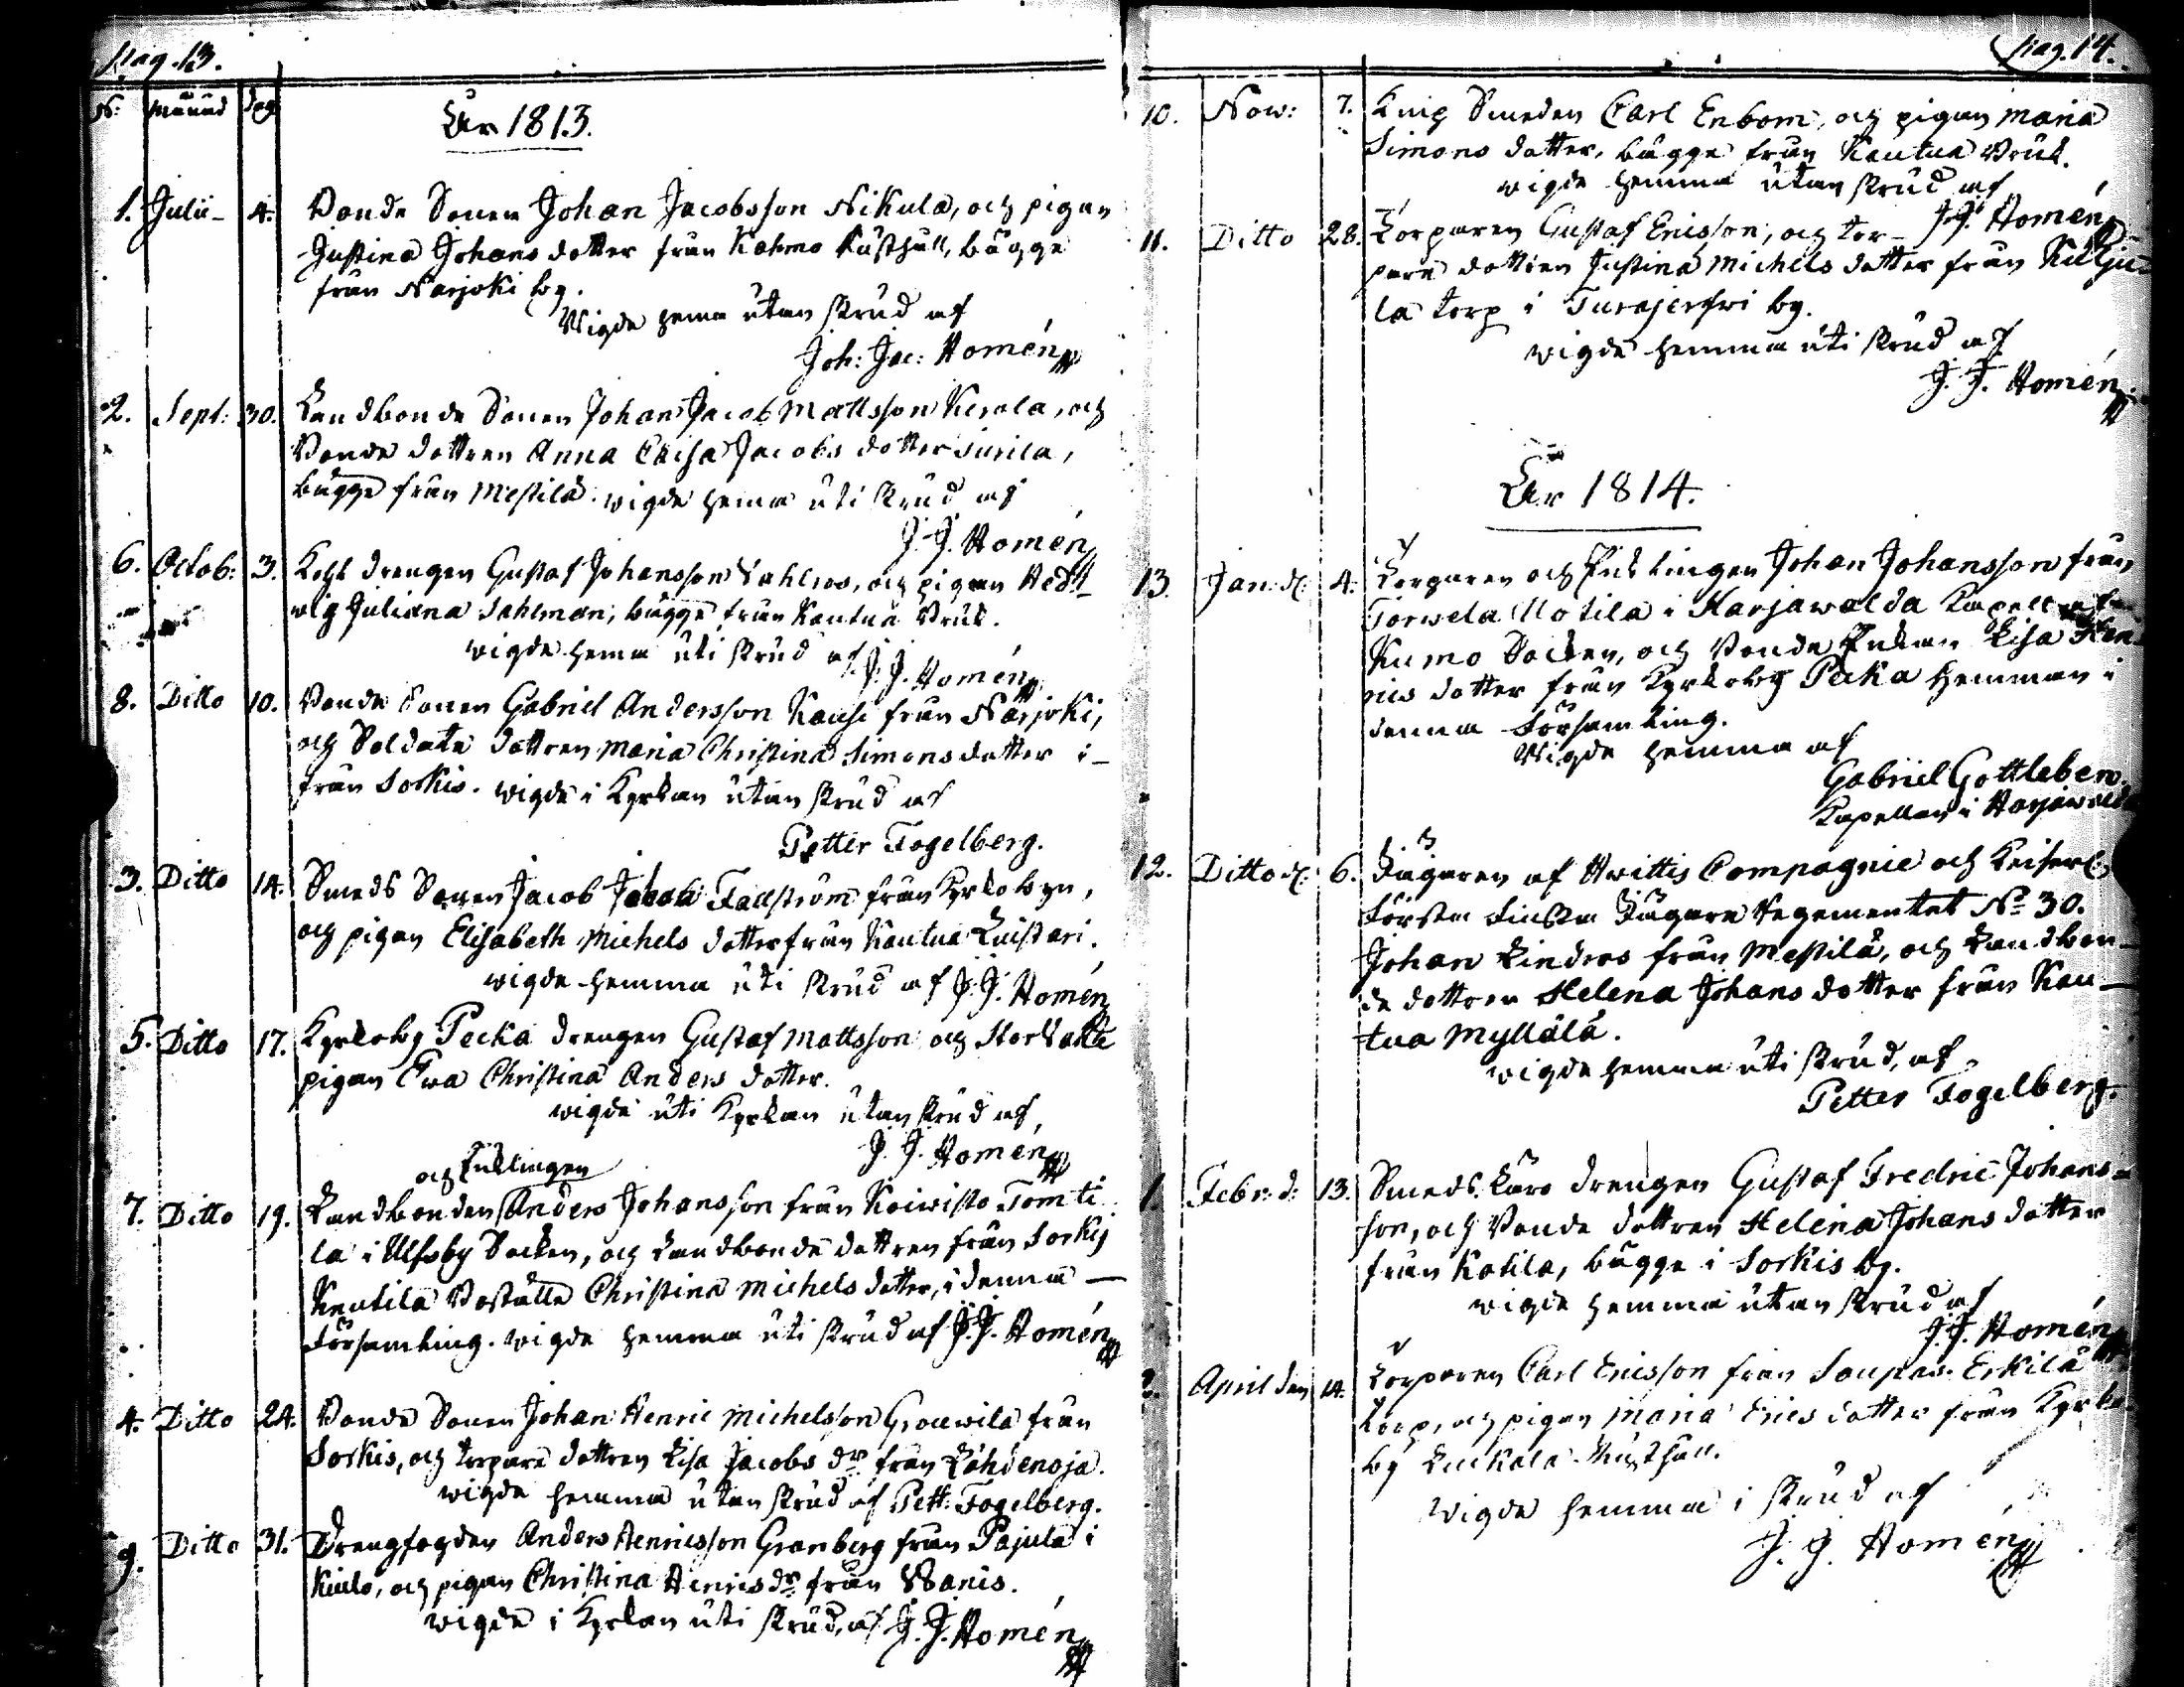 pag. 13.
N: Månad dag
År 1813.
1. Julii 4. Bonde Sonen Johan Jacobsson Nikula, och pigan
Justina Johans dotter från Kahmo Rusthåll, bägge
från Narjoki by.
Wigde hema utan skrud af
Joh: Jac: Homén
2. Sept: 30. Landbonde Sonen Johan Jacob Mattsson Kerola, och
Bonde dottren Anna Caisa Jacobs dotter Surila,
bägge från Mestilä. wigde hema uti skrud af
J. J. Homén
6. Octob: 3. drengen Gustaf Johansson Vahlroos, och pigan Hed-
wig Juliana Sahlman, bägge från Kautua Bruk.
wigde hema uti skrud af J. J. Homén
8. Ditto 10. Bonde Sonen Gabriel Andersson Kausi från Närjoki,
och Soldate dottren Maria Christina Simons dotter i-
från Sorkis. wigde i Kyrkan utan skrud af
Petter Fogelberg.
3. Ditto 14. Smeds Sonen Jacob Fallström från Kyrkobyn,
och pigan Elisabeth Michels dotter från Kautua Luistari.
wigde hemma uti skrud af J. J. Homén
5. Ditto 17. Kyrkoby Pecka drengen Gustaf Mattsson och
pigan Ewa Christina Anders dotter.
wigde uti Kyrkan utan skrud af
J. J. Homén
och Enklingen
7. Ditto 19. Landbonden Anders Johansson från Koiwisto Tomti-
la i Ulfsby Socken, och Landbonde dottren från Sorkis
Knutila Boställe Christina Michels dotter, i denna
Församling. wigde hemma uti skrud af J. J. Homén
4. Ditto 24. Bonde Sonen Johan Henric Michelsson Grouwila från
Sorkis, och torpare dottren Lisa Jacobs dr från Lähdenoja.
wigde hemma utan skrud af Pett: Fogelberg.
9. Ditto 31. Drengfogden Anders Henricsson Granberg från Pajula i
Kiulo, och pigan Christina Henrics dr från Wanis.
wigde i Kyrkan uti skrud, af J. J. Homén
pag. 14.
10. Now: 7. Knip Smeden Carl Enbom, och pigan Maria
Simons dotter, bägge från Kautua Bruk.
wigde hemma utan skrud af
J. J. Homén
11. Ditto 28. Torparen Gustaf Ericsson, och tor-
pare dottren Justina Michels dotter från Kilkju-
la torp i Turajerfwi by.
wigde hemma uti skrud af
J. J. Homén
År 1814.
13. Jan: d: 4. Torparen och Enklingen Johan Johansson från
Torwela Motila i Harjawalda Kapell af
Kumo Socken, och Bonde Enkan Lisa Hen-
rics dotter från Kyrkoby Pecka Hemman i
denna Församling.
Wigde hemma af
Gabriel Gottleben.
Kapellan i Harjawalda
12. Ditto d: 6. Jägaren af Hvittis Compagnie och Keiserl:
Första Finska Jägare Regementet No 30.
Johan Lindroos från Mestilä, och Landbon-
de dottren Helena Johans dotter från Kau-
tua Myllälä.
wigde hemma uti skrud, af
Petter Fogelberg.
1. Febr: d: 13. Smeds Läro drengen Gustaf Fredric Johans-
son, och Bonde dottren Helena Johans dotter
från Katila, bägge i Sorkis by.
wigde hemma utan skrud af
J. J. Homén
2. April den 14. Torparen Carl Ericsson från Soupas Erkilä
torp, och pigan Maria Erics dotter från Kyrko-
by Luckala Rusthåll.
Wigde hemma i skrud af
J. J. Homén